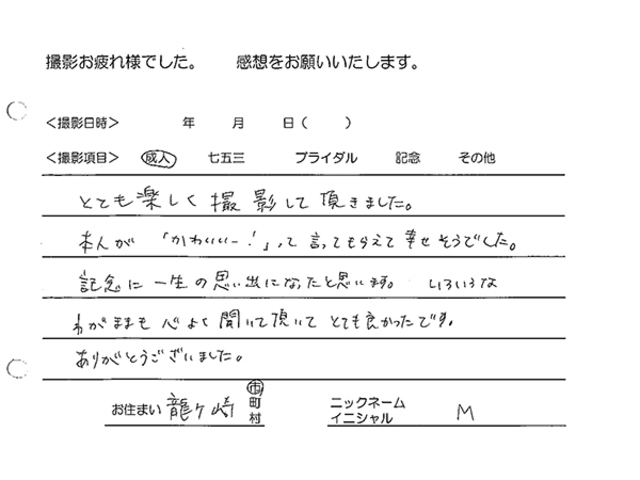 撮影お疲れ様でした。　感想をお願いいたします。
＜撮影日時＞　年　月　日（　）
＜撮影項目＞　成人　七五三　ブライダル　記念　その他
とても楽しく撮影して頂きました。
本人が「かわいいー！」って言ってもらえて幸せそうでした。
記念に一生の思い出になったと思います。いろいろな
わがままも心よく聞いて頂いてとても良かったです。
ありがとうございました。
お住まい　龍ヶ崎　市町村　ニックネーム イニシャル　M